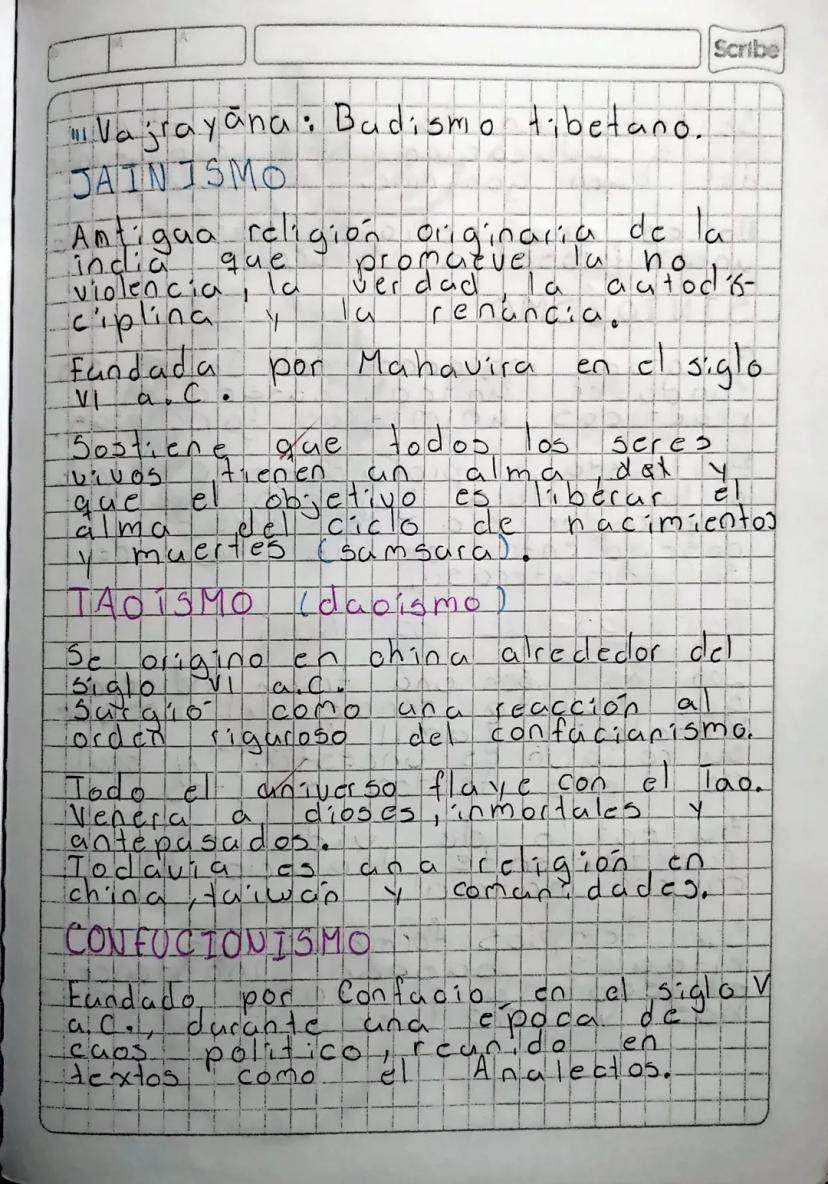 Scribe
"' Vajrayāna: Budismo tibetano.
JAINISMO
Antigua religión originaria de la
india que promueve la no
violencia, la verdad, la autodis-
ciplina y la renuncia.
Fundada por Mahavira en el siglo
VI a.C.
Sostiene que todos los seres
vivos tienen un alma, y
que el objetivo es liberar el
alma del ciclo de nacimientos
y muertes (samsara).
TAOISMO (daoismo)
Se origino en china alrededor del
siglo VI a.C.
Surgió como una reacción al
orden riguroso del confucianismo.
Todo el universo fluye con el Tao.
Venera a dioses, inmortales y
antepasados.
Todavía es una religión en
china, taiwán y comunidades.
CONFUCIONISMO
Fundado por Confucio en el siglo V
a.C., durante una epoca de
caos político, reunido en
textos como el Analectos.